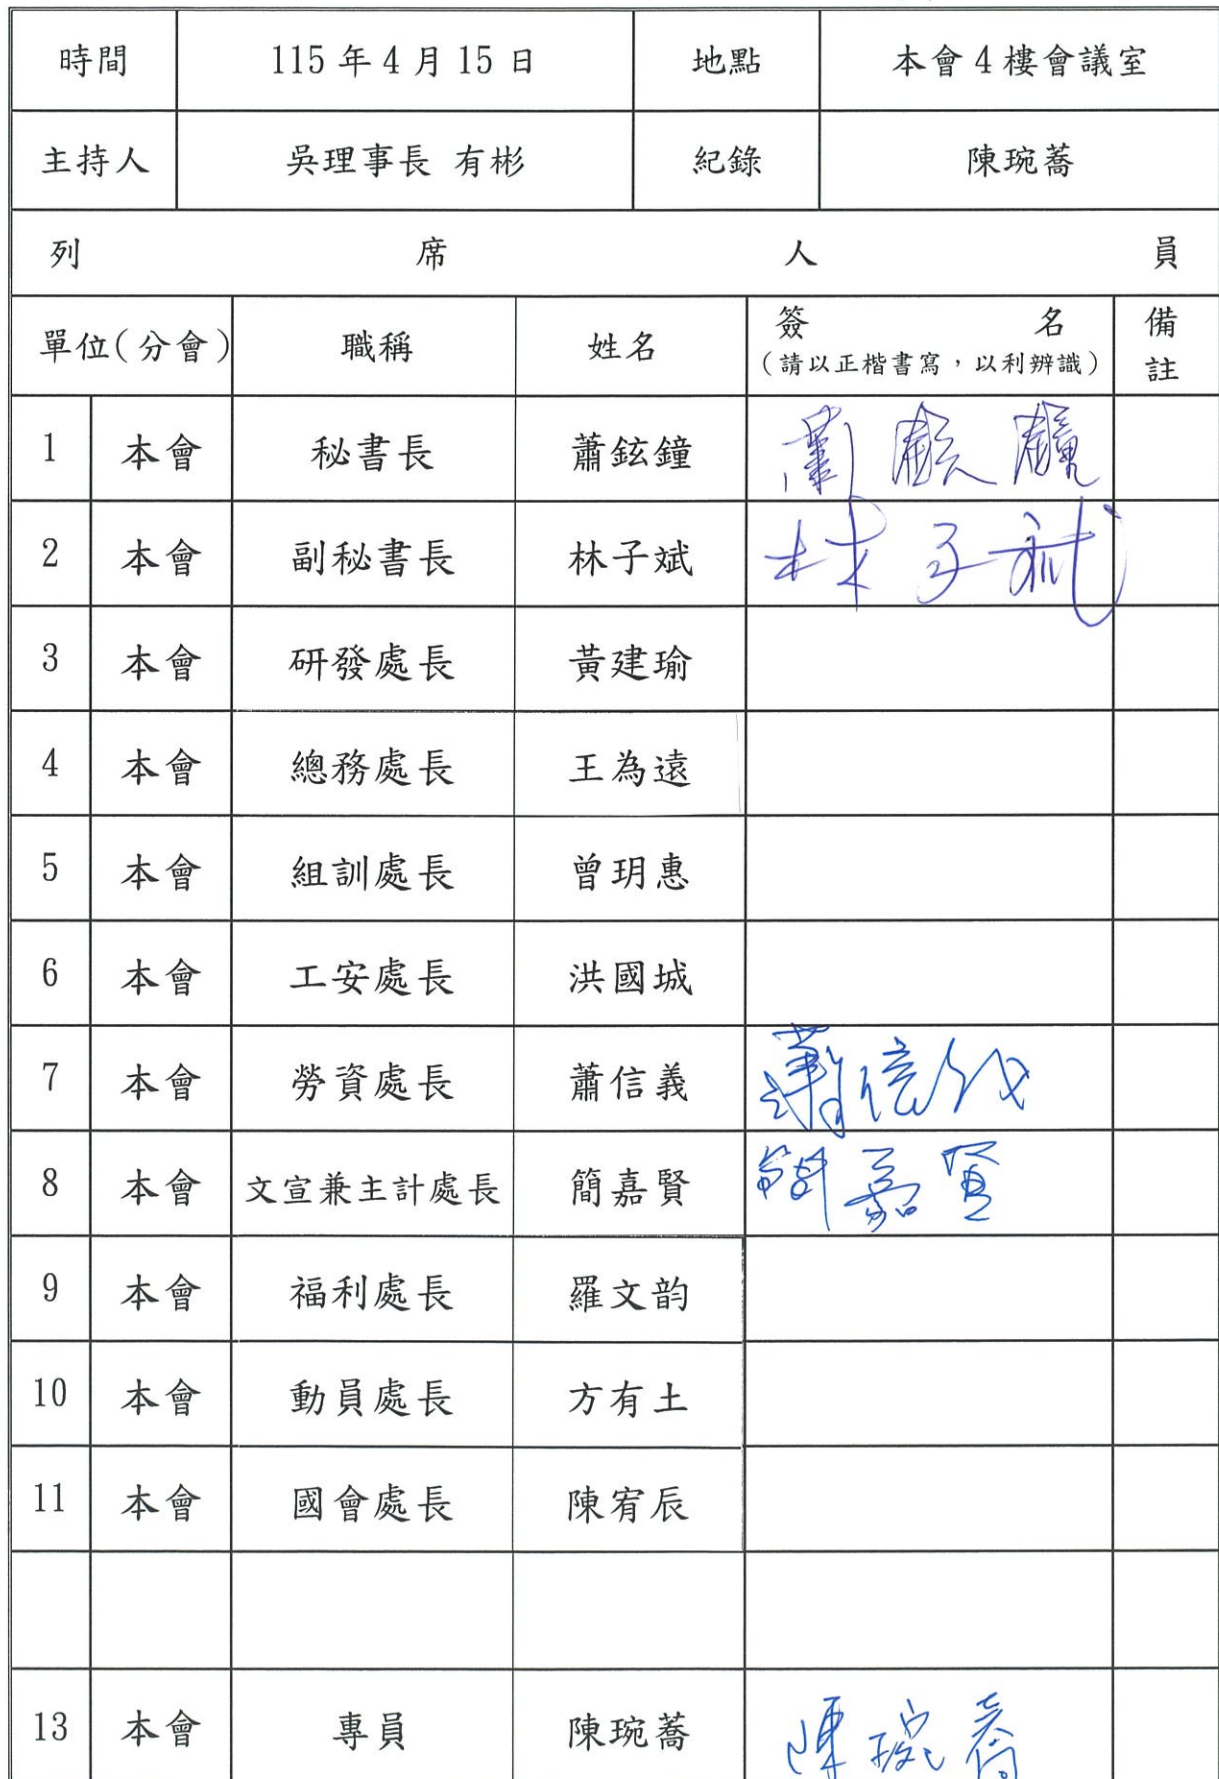 時間 115年4月15日 地點 本會4樓會議室
主持人 吳理事長 有彬 紀錄 陳琬蕎
列席人員
單位(分會) 職稱 姓名 簽名 備註
(請以正楷書寫，以利辨識)
1 本會 秘書長 蕭鉉鐘 蕭鉉鐘
2 本會 副秘書長 林子斌 林子斌
3 本會 研發處長 黃建瑜
4 本會 總務處長 王為遠
5 本會 組訓處長 曾玥惠
6 本會 工安處長 洪國城
7 本會 勞資處長 蕭信義 蕭信義
8 本會 文宣兼主計處長 簡嘉賢 簡嘉賢
9 本會 福利處長 羅文韵
10 本會 動員處長 方有土
11 本會 國會處長 陳宥辰
13 本會 專員 陳琬蕎 陳琬蕎